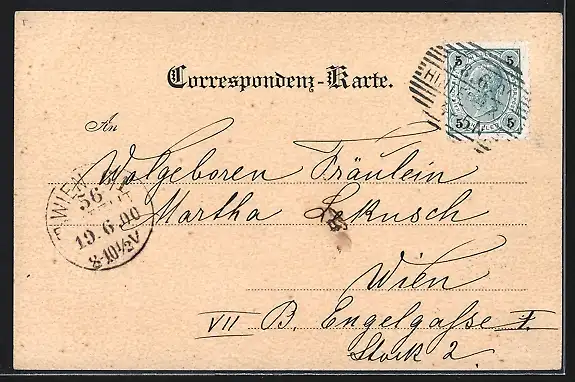 Correspondenz-Karte.
5 5
5 5
An
Wolgeboren Fräulein
Martha Lekusch
Wien
VII B. Engelgasse 1.
Stock 2.
WIEN
56
19.6.00
8-10½V